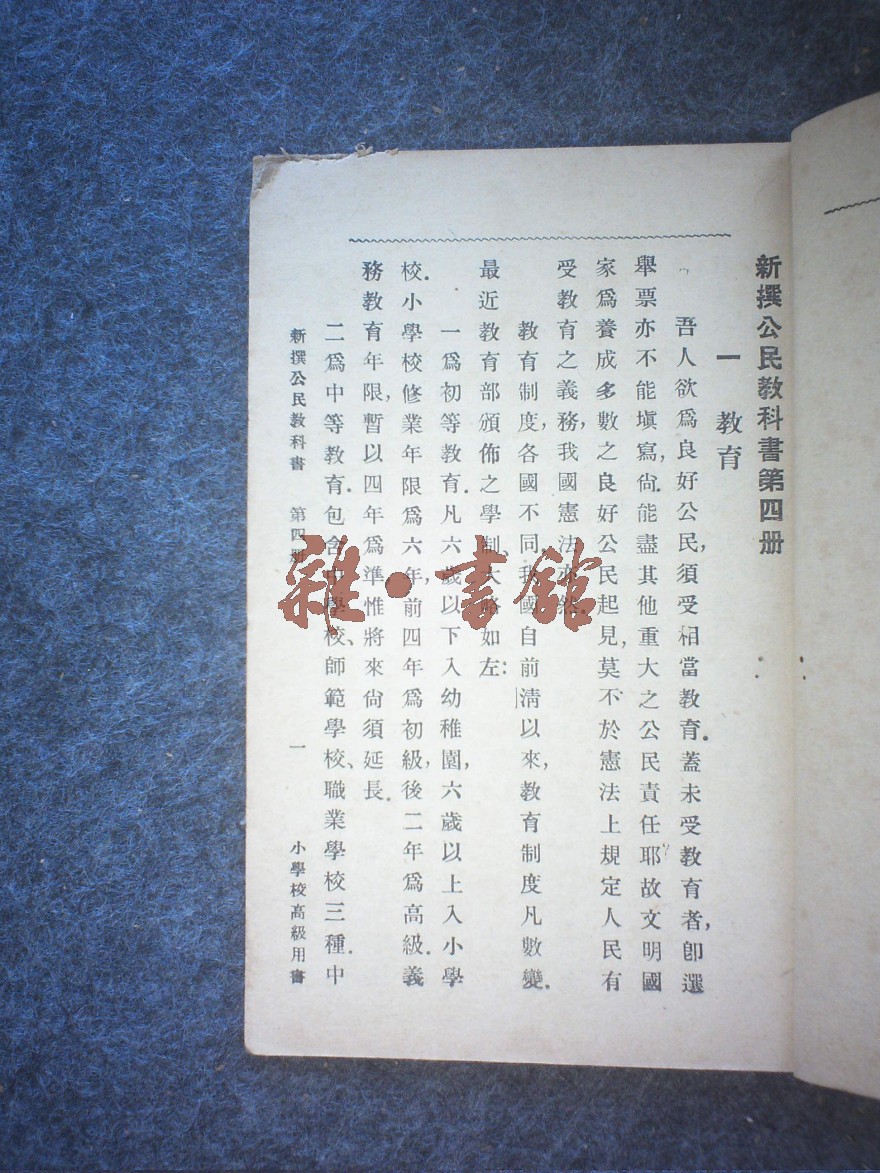 新撰公民教科書第四册
一 教育
吾人欲爲良好公民,須受相當教育.蓋未受教育者,卽選
舉票亦不能塡寫,尙能盡其他重大之公民責任耶?故文明國
家爲養成多數之良好公民起見,莫不於憲法上規定人民有
受教育之義務,我國憲法亦然.
教育制度,各國不同,我國自前淸以來,教育制度凡數變.
最近教育部頒佈之學制,大略如左:
一爲初等教育.凡六歲以下入幼稚園,六歲以上入小學
校.小學校修業年限爲六年,前四年爲初級,後二年爲高級.義
務教育年限,暫以四年爲準,惟將來尙須延長.
二爲中等教育.包含中學校、師範學校、職業學校三種.中
新撰公民教科書 第四册 一 小學校高級用書
雜·書館